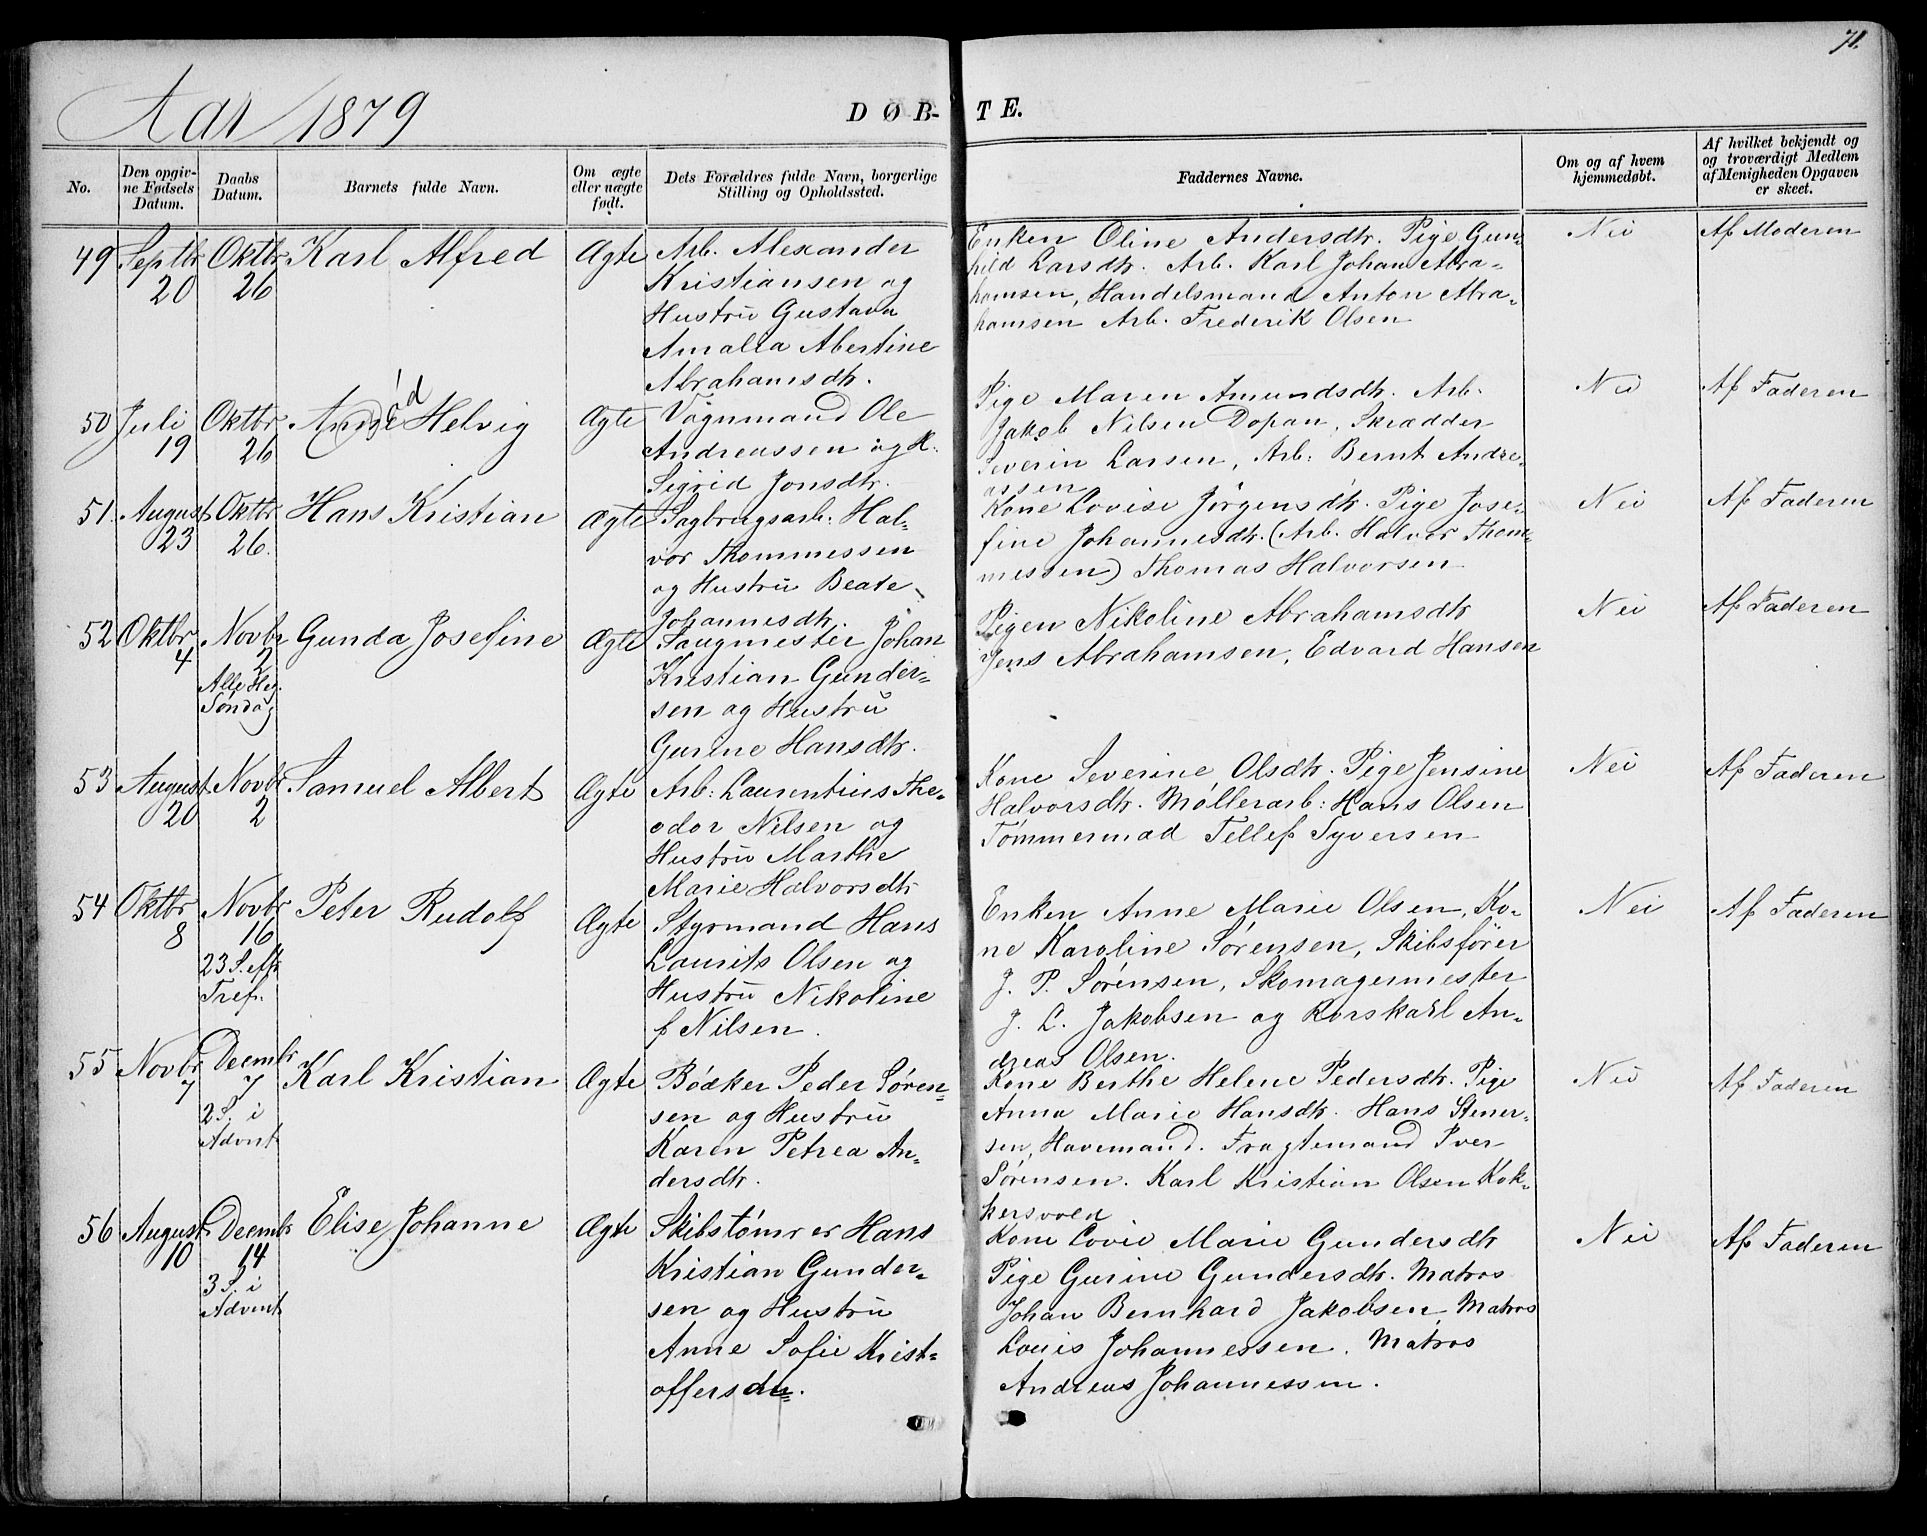 71.
Aar 1879
DØB-
TE.
No.
Den opgiv-
ne Fødsels
Datum.
Daabs
Datum.
Barnets fulde Navn.
Om ægte
eller uægte
født.
Dets Forældres fulde Navn, borgerlige
Stilling og Opholdssted.
Faddernes Navne.
Om og af hvem
hjemmedøbt.
Af hvilket bekjendt og
og troværdigt Medlem
af Menigheden Opgaven
er skeet.
49
Septbr
20
Oktbr
26
Karl Alfred
Ægte
Arb. Alexander
Kristiansen og
Hustru Gustava
Amalia Abertine
Abrahamsdtr.
Enken Oline Andersdtr. Pige Gun-
hild Larsdtr. Arb. Karl Johan Abra-
hamsen, Handelsmand Anton Abra-
hamsen Arb. Frederik Olsen
Nei
Af Moderen
50
Juli
19
Oktbr
26
Helvig
Ægte
Vognmand Ole
Andreassen og H.
Sigrid Jonsdtr.
Pige Maren Amundsdtr. Arb.
Jakob Nilsen Dopan, Skrædder
Severin Larsen, Arb: Bernt Andre-
assen
Nei
Af Faderen
51.
August
23
Oktbr
26.
Hans Kristian
Ægte
Sagbrugsarb: Hal-
vor Thommessen
og Hustru Beate
Johannesdtr.
Kone Lovise Jørgensdtr. Pige Jose-
fine Johannesdtr. (Arb. Halvor Thom-
messen) Thomas Halvorsen
Nei
Af Faderen
52
Oktbr
4
Novbr
2
Alle Hg.
Søndag
Gunda Josefine
Ægte
Saugmester Johan
Kristian Gunder-
sen og Hustru
Gurine Hansdtr.
Pigen Nikoline Abrahamsdtr
Jens Abrahamsen, Edvard Hansen
Nei
Af Faderen
53
August
20
Novbr
2
Samuel Albert
Ægte
Arb: Laurentius The-
odor Nilsen og
Hustru Marthe
Marie Halvorsdtr
Kone Severine Olsdtr. Pige Jensine
Halvorsdtr. Møllerarb: Hans Olsen
Tømmermad Tellef Syversen
Nei
Af Faderen
54
Oktbr
8
Novbr
16
23 S. eft
Tref.
Peter Rudolf
Ægte
Styrmand Hans
Laurits Olsen og
Hustru Nikoline
f Nilsen.
Enken Anne Marie Olsen, Ko-
ne Karoline Sørensen, Skibsfører
J. P. Sørensen, Skomagermester
J. L. Jakobsen og Korskarl An-
dreas Olsen.
Nei
Af Faderen
55
Novbr
7
Decmbr
7
2 S. i
Advent
Karl Kristian
Ægte
Bødker Peder Søren-
sen og Hustru
Karen Petrea An-
dersdtr.
Kone Berthe Helene Pedersdtr. Pige
Anna Marie Hansdtr. Hans Stener-
sen, Havemand. Fragtemand Iver
Sørensen. Karl Kristian Olsen Kok-
kersvold
Nei
Af Faderen
56
August
10
Decmbr
14
3 S. i
Advent
Elise Johanne
Ægte
Skibstømrer Hans
Kristian Gunder-
sen og Hustru
Anne Sofie Krist-
offersdtr.
Kone Lovie Marie Gundersdtr
Pige Gurine Gundersdtr. Matros
Johan Bernhard Jakobsen, Matros
Louis Johannessen. Matros
Andreas Johannessen.
Nei
Af Faderen